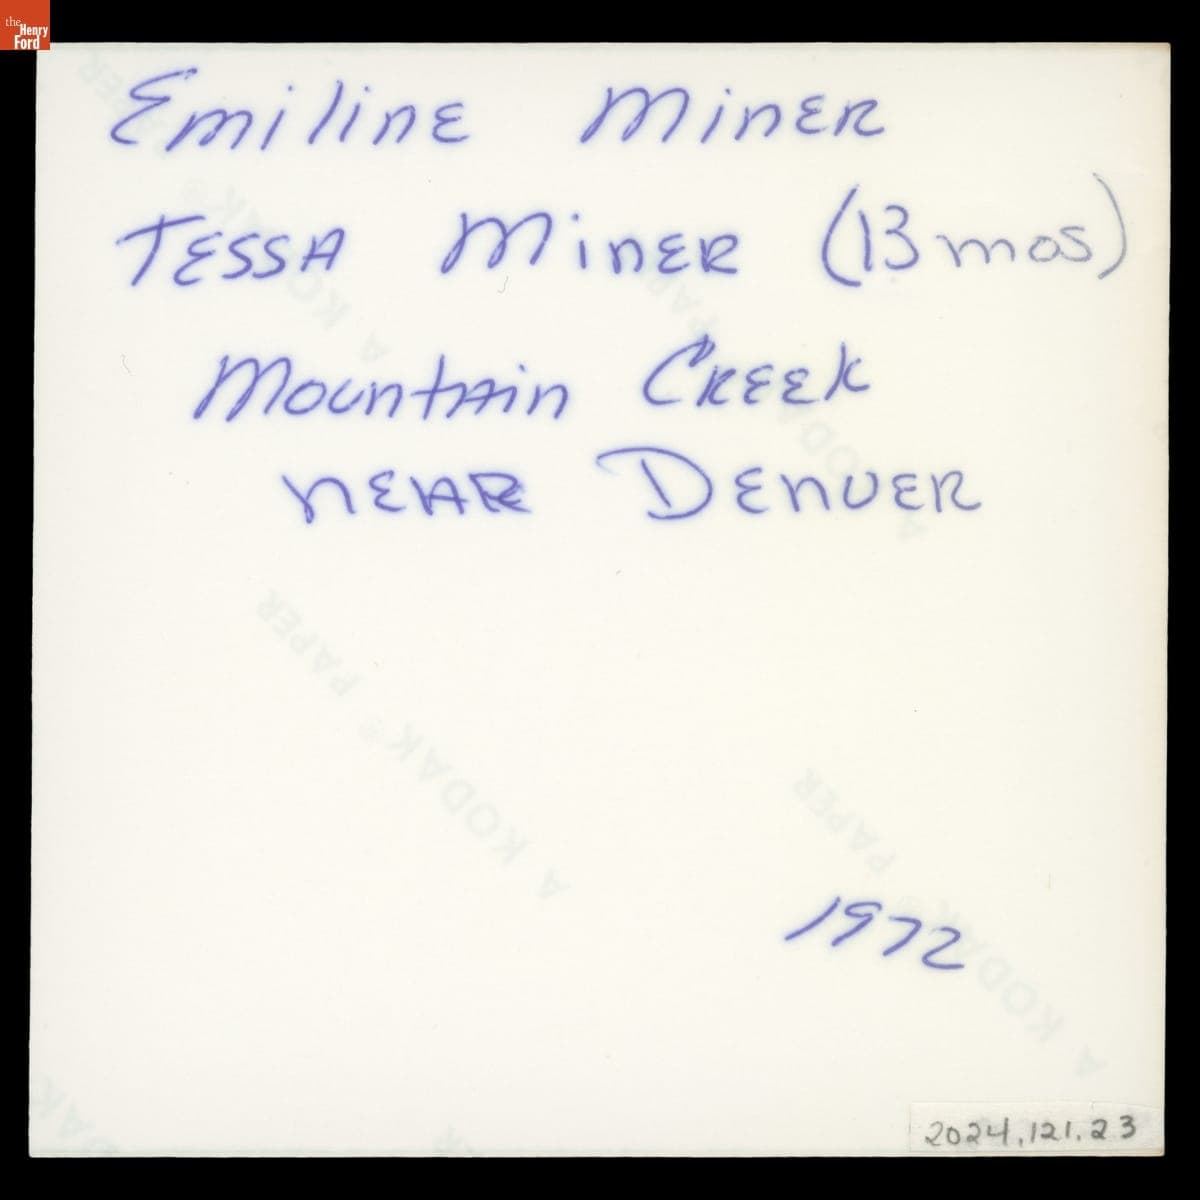 the
Henry
Ford
Emiline Miner
Tessa Miner (13 mos)
Mountain Creek
near Denver
A KODAK® PAPER
A KODAK® PAPER
A KODAK® PAPER
A KODAK® PAPER
1972
2024.121.23